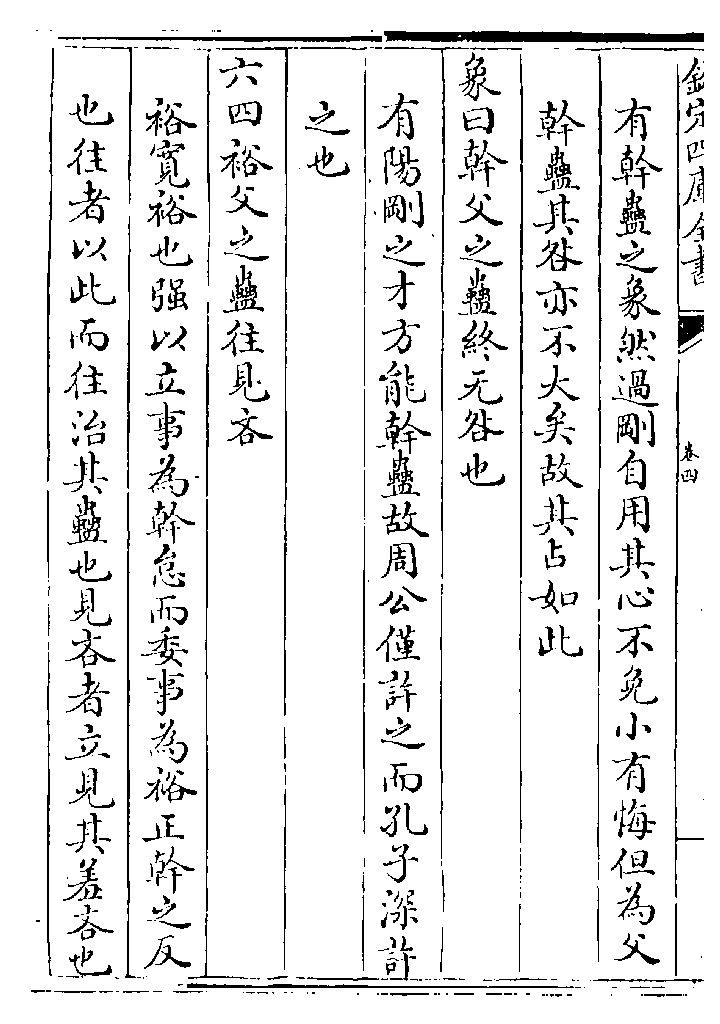 欽定四庫全書
卷四
有幹蠱之象然過剛自用其心不免小有悔但為父
幹蠱其咎亦不大矣故其占如此
象曰幹父之蠱終无咎也
有陽剛之才方能幹蠱故周公僅許之而孔子深許
之也
六四裕父之蠱往見吝
裕寛裕也强以立事為幹怠而委事為裕正幹之反
也往者以此而往治其蠱也見吝者立見其羞吝也